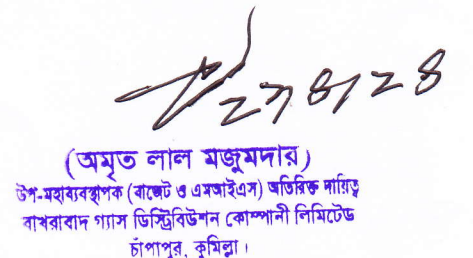 ২৭/৪/২৪
(অমৃত লাল মজুমদার)
উপ-মহাব্যবস্থাপক (বাজেট ও এমআইএস) অতিরিক্ত দায়িত্ব
বাখরাবাদ গ্যাস ডিস্ট্রিবিউশন কোম্পানী লিমিটেড
চাঁপাপুর, কুমিল্লা।